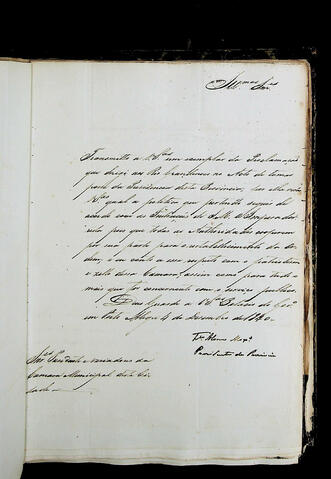 Ill.mos Snr.es
Transmitto a V.Sas um exemplar da Proclamação
que dirigi aos Rio Grandenses no Acto de tomar
posse da Presidencia desta Provincia; por ella verão
V.Sas qual a politica que pretendo seguir de
acordo com as de S. M. o Imperador
pois que todas as Authoridades cooperem
por sua parte para o restabelecimento da or
dem, e eu conto a esse respeito com o patriotismo
e zelo dessa Camara, assim como para tudo o
mais que for concernente com o serviço publico.
Deos Guarde a V.Sas Palacio do Gov.o
em Porto Alegre 4 de Dezembro de 1840.
Presidente da Provincia
Snr.es Presidente e vereadores da
Camara Municipal desta Ci
dade